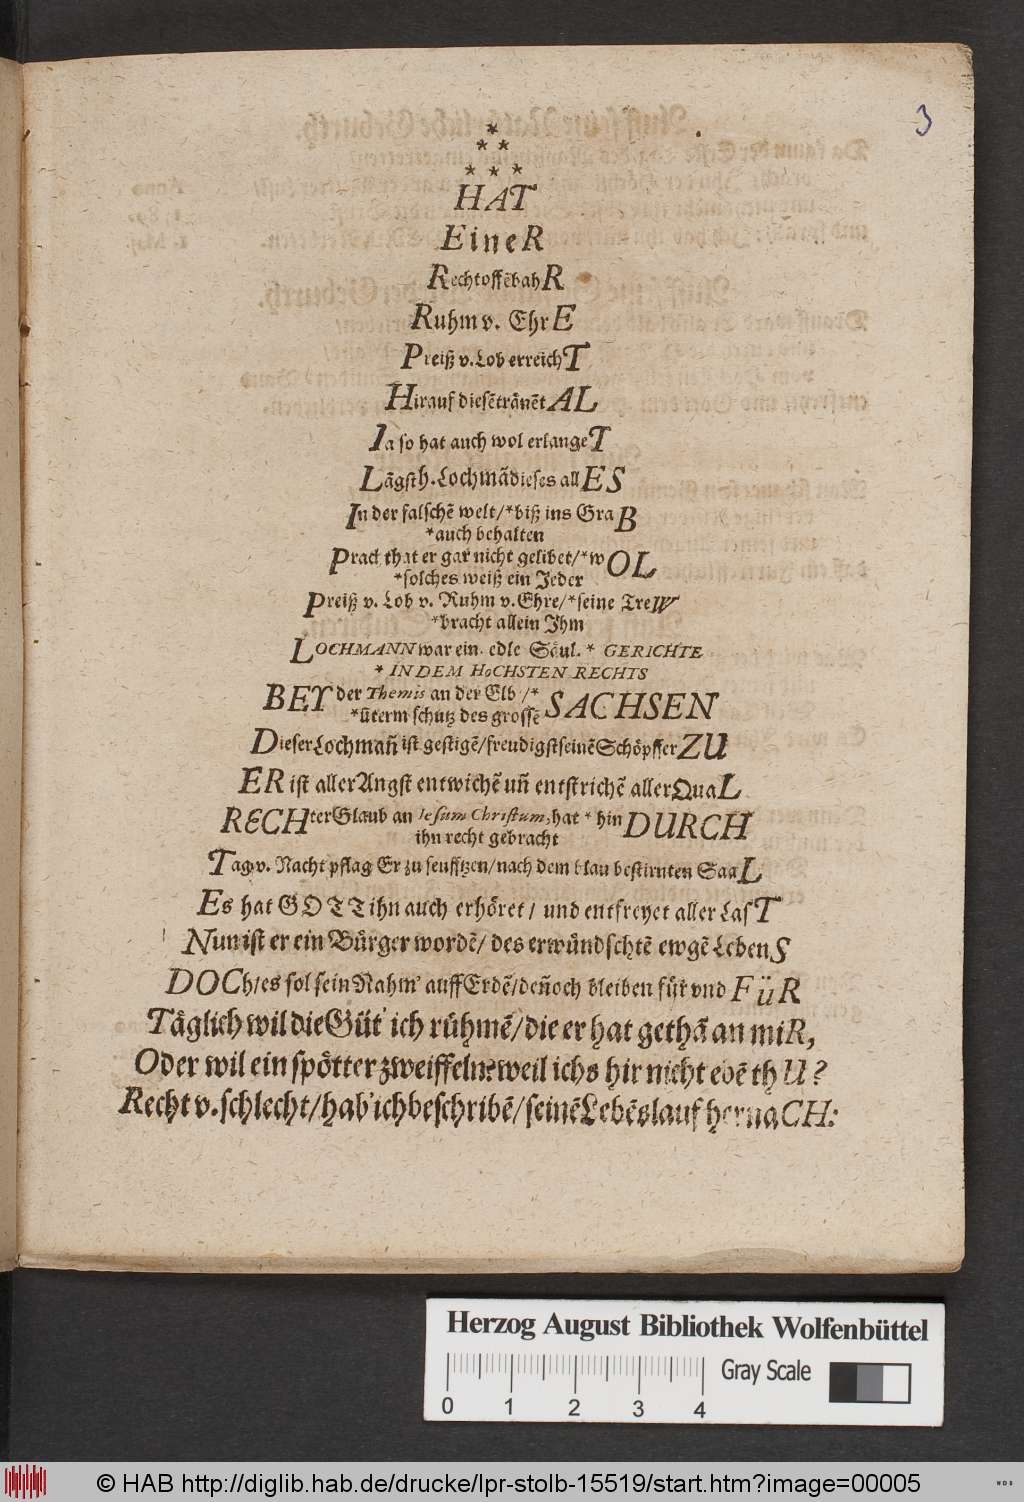 3
*
* *
* * *
HAT
EineR
RechtoffēbahR
Ruhm v. EhrE
Preiß v. Lob erreichT
Hirauf diesētränētAL
Ia so hat auch wol erlangeT
Lāgst h. Lochmā dieses allES
In der falschē welt/ *biß ins GraB
*auch behalten
Pracht hat er gar nicht gelibet/ *wOL
*solches weiß ein Jeder
Preiß v. Lob v. Ruhm v. Ehre/ *seine TreW
*bracht allein Ihm
LOCHMANN war ein edle Säul. * GERICHTE
* IN DEM HoCHSTEN RECHTS
BEY der Themis an der Elb /* SACHSEN
*ūterm schutz des grossē
Dieser Lochmañ ist gestigē/ freudigst seinē Schöpffer ZU
ER ist aller Angst entwichē uñ entstrichē aller QuaL
RECHter Glaub an Iesum Christum, hat * hin DURCH
ihn recht gebracht
Tag v. Nacht pflag Er zu seufftzen/ nach dem blau bestirnten SaaL
Es hat GOTT ihn auch erhöret/ und entfreyet aller LasT
Nun ist er ein Bürger wordē/ des erwündschtē ewgē LebenS
DOCh/ es sol sein Nahm' auff Erdē/ deñoch bleiben für vnd FüR
Täglich wil die Güt' ich rühmē/ die er hat gethā an miR,
Oder wil ein spötter zweiffeln? weil ichs hir nicht ebē thU?
Recht v. schlecht/ hab' ich beschribē/ seinē Lebēslauf hernaCH:
Herzog August Bibliothek Wolfenbüttel
Gray Scale
0 1 2 3 4
© HAB http://diglib.hab.de/drucke/lpr-stolb-15519/start.htm?image=00005